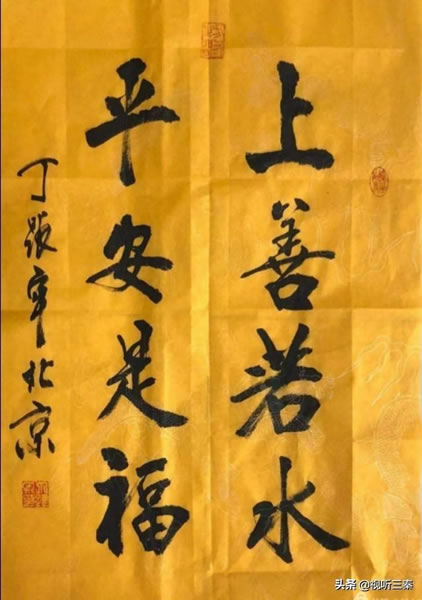 上善若水
平安是福
丁張军北京
头条 @视听三秦